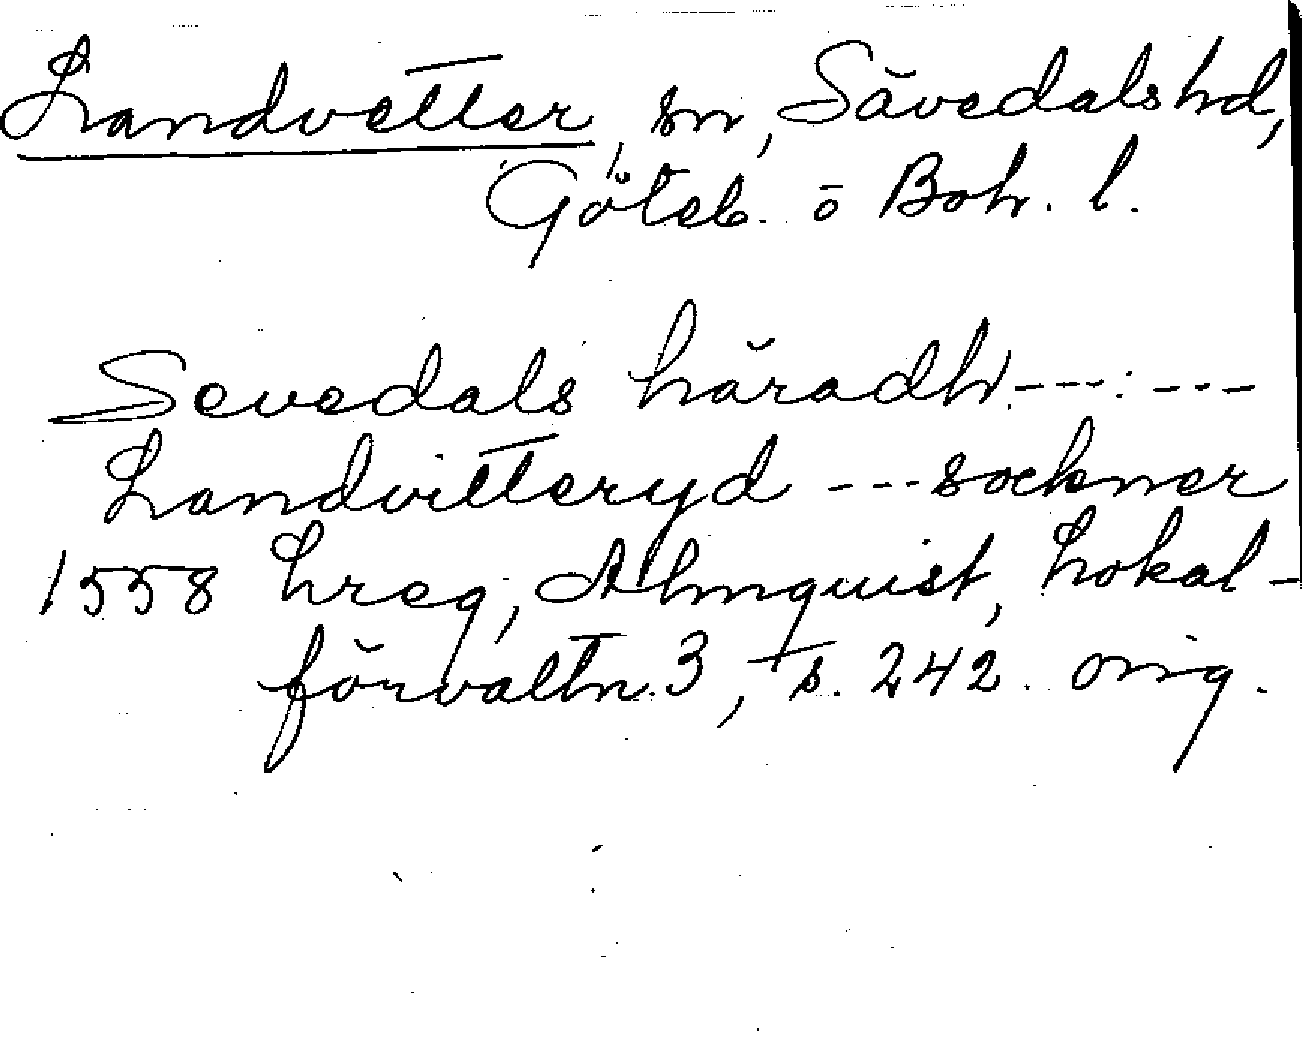 Landvetter, sn, Sävedals hd,
Göteb. o Boh. l.
Sevedals häradh: ---: ---
Landvitteryd --- sockner
1558 Lreg, Almquist, Lokal-
förvaltn. 3, s. 242. orig.